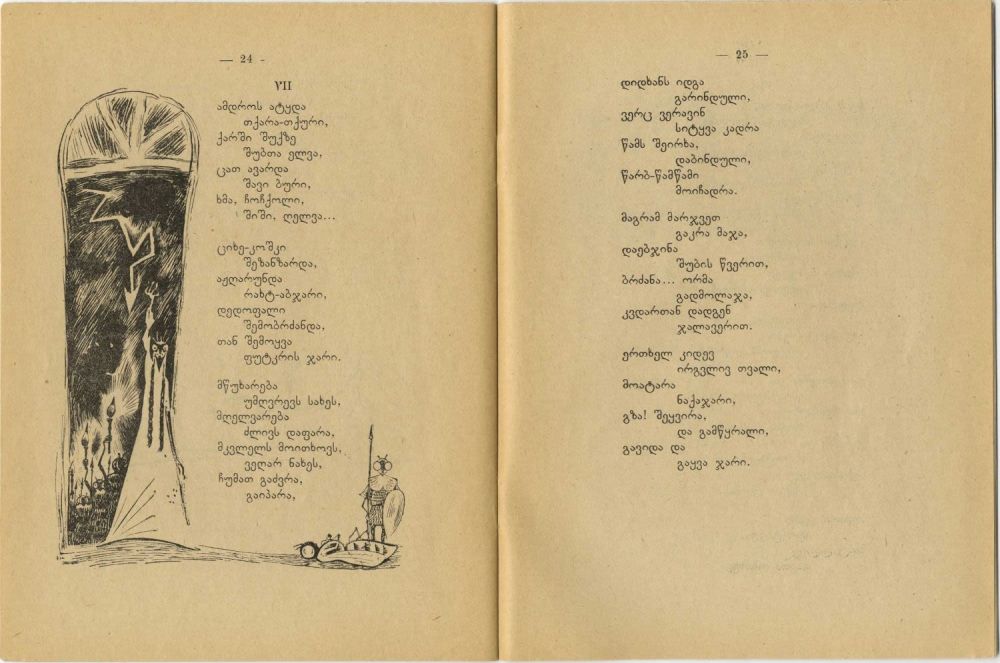 — 24 -
VII
ამდროს ატყდა
თქარა-თქური,
ქარში შუქზე
შუბთა ელვა,
ცათ ავარდა
შავი ბური,
ხმა, ჩოჩქოლი,
შიში, ღელვა...
ციხე-კოშკი
შეზანზარდა,
აჟღარუნდა
რახტ-აბჯარი,
დედოფალი
შემობრძანდა,
თან შემოყვა
ფუტკრის ჯარი.
მწუხარება
უმღვრევს სახეს,
მღელვარება
ძლივს დაფარა,
მკვლელს მოითხოვს,
ვეღარ ნახეს,
ჩუმათ გაძვრა,
გაიპარა,
— 25 —
დიდხანს იდგა
გარინდული,
ვერც ვერავინ
სიტყვა კადრა
წამს შეირხა,
დაბინდული,
წარბ-წამწამი
მოიჩადრა.
მაგრამ მარჯვეთ
გაკრა მაჯა,
დაებჯინა
შუბის წვერით,
ბრძანა... ორმა
გადმოლაჯა,
კვდართან დადგენ
ჯალავერით.
ერთხელ კიდევ
ირგვლივ თვალი,
მოატარა
ნაქაჯარი,
გზა! შეყვირა,
და გამწყრალი,
გავიდა და
გაყვა ჯარი.